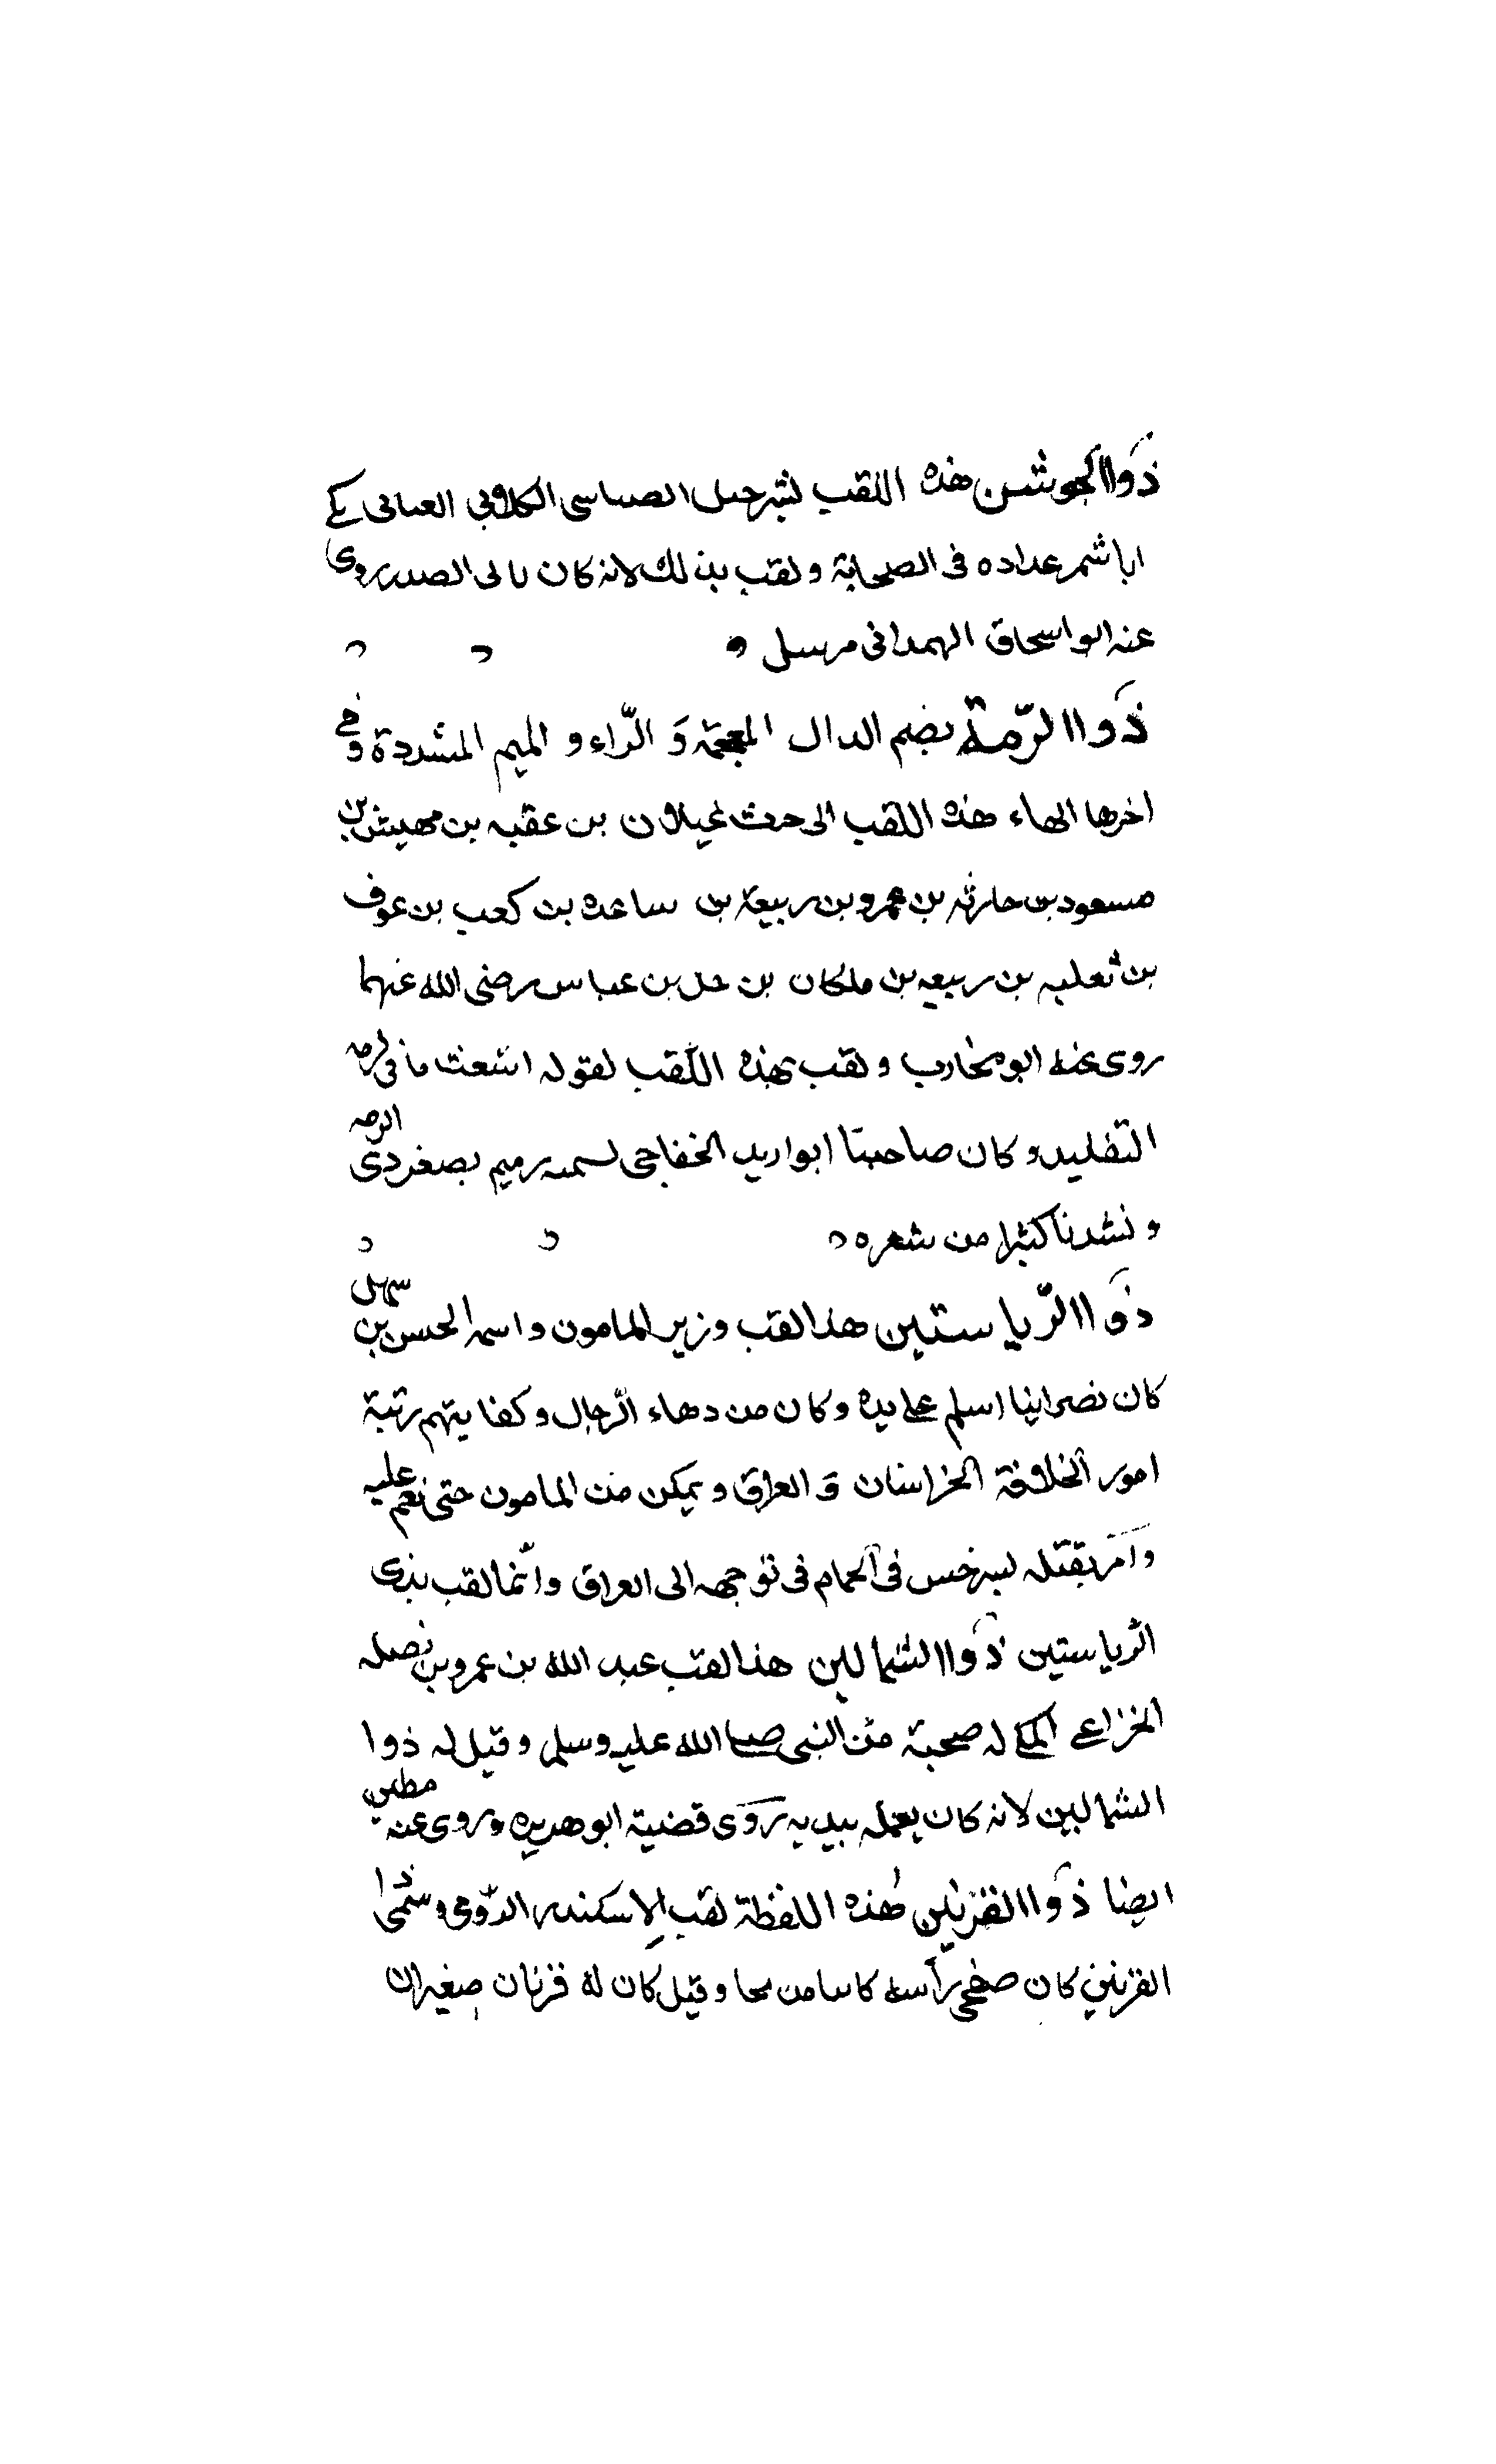 ذَواالجوشن هذه اللقب لشرحبيل الصبابى الكلابى العبابى يكے
اباشمر عداده فى الصحابة ولقب بذلك لانه كان ناتى الصدر روى
عنه ابواسحاق الهمدانى مرسل
ذَواالرّمة بضم الدال المعجمة وَ الرّاء و الميم المشددة وفى
اخرها الهاء هذه اللقب الى حرث غيلان بن عقبه بن مهيش بن
مسعود بن حارثه بن عمرو بن ربيعة بن ساعده بن كعب بن عوف
بن ثعلبه بن ربيعه بن ملكان بن عدى بن عباس رضى الله عنهما
روى عنه ابومخارب ولقب بهذه اللّقب لقوله اشعث مافى لرمه
التقليد وكان صاحبنا ابوا زيد الخفاجى لسمه رميم بصغر ذى الرمه
و نشدنا كثيرا من شعره
ذَوا الرّياستين هذا لقب وزير المامون واسمه الحسن بن سهل
كان نصرانيا اسلم على يده وكان من دهاء الرّجال وكفايتهم رتبة
امور الخلافة الخراسان وَ العراق و يمكن من المامون حتى نقم عليه
وامَر بقتله لسرخس فى الحمام فى توجهه الى العراق وانّما لقب بذى
الرياستين ذَوا الشمالين هذا لقب عبد الله بن عمرو بن نضله
الخزاعے المكے له صحبة من النبى صلى الله عليه وسلم وقيل له ذوا
الشمالين لانه كان يعمله بيديه رَوَى قضية ابو هريره وروى عنه مطين
ايضا ذَوا القرنين هذه اللفظة لقب لإسكندر الرّومى وسمى ذا
القرنين كان صفحى رأسه كانتا من نحاس وقيل كان له قرنان صغيران